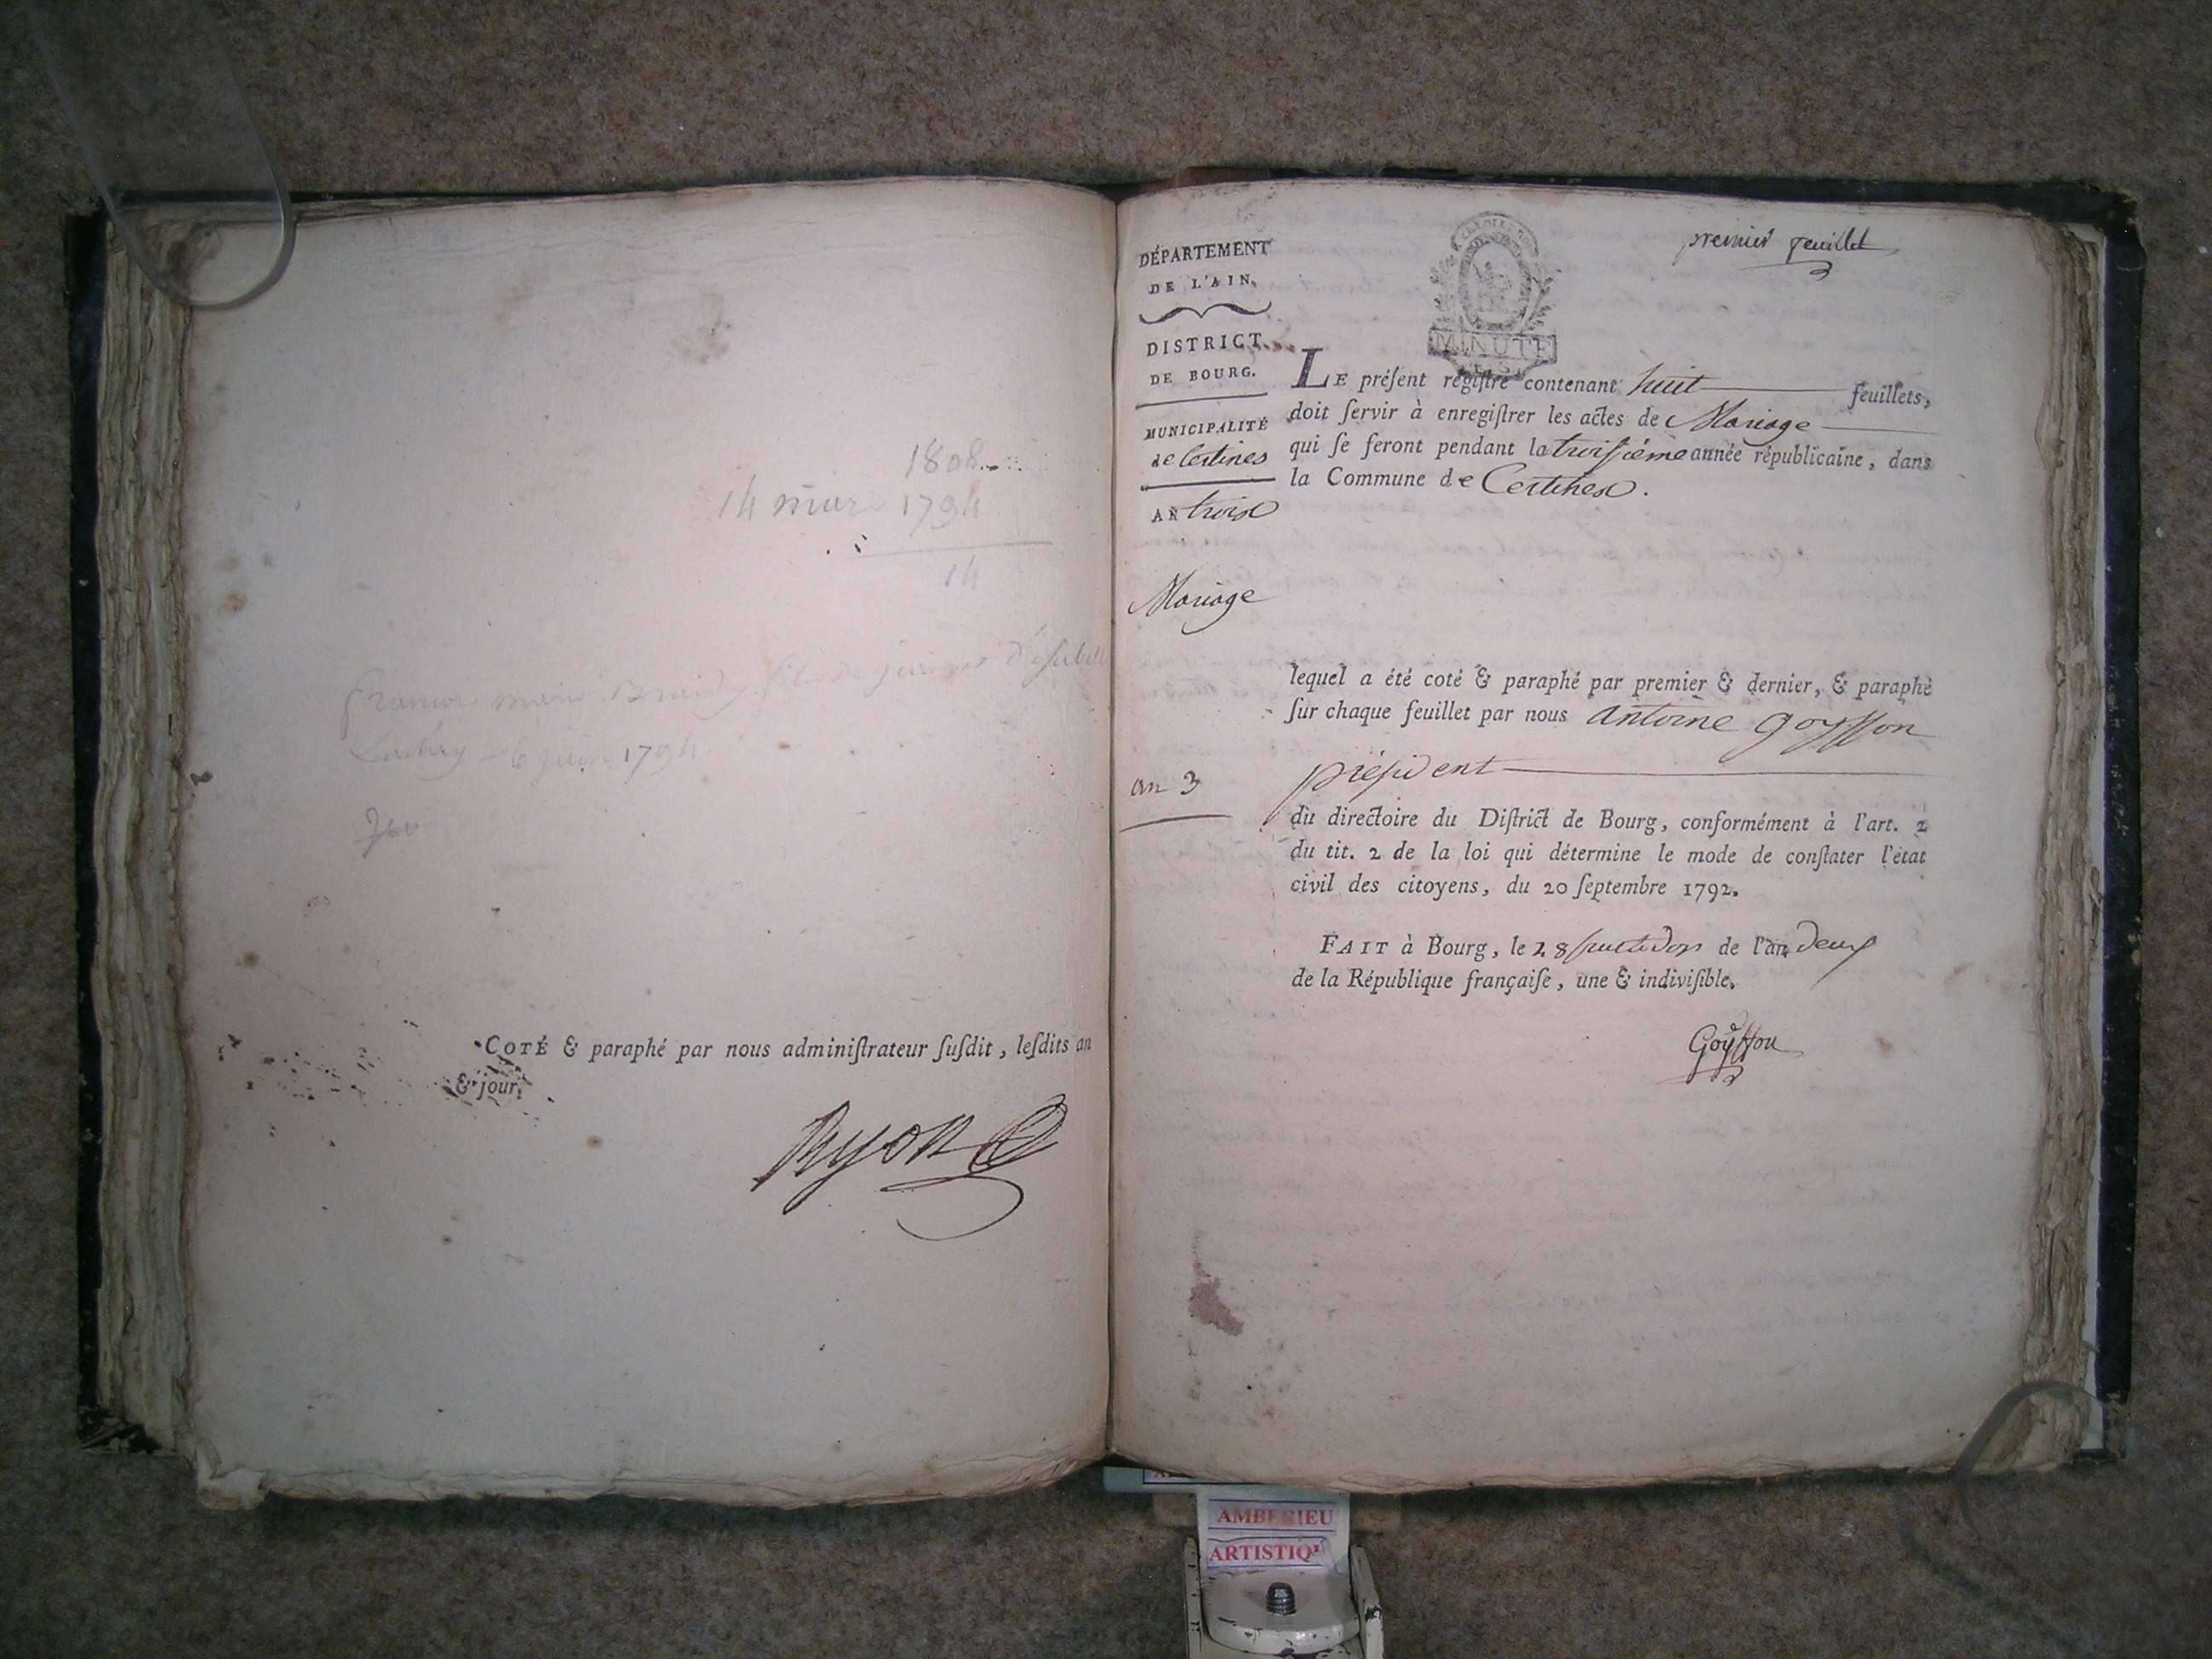 1808
14 mars 1794
14
6 juin 1794
COTÉ & paraphé par nous adminiſtrateur ſuſdit, leſdits an
& jour.
premier feuillet
DÉPARTEMENT
DE L'AIN.
DISTRICT
DE BOURG.
MUNICIPALITÉ
de Certines
AN trois
Mariage
an 3
MINUTE
LE préſent régiſtre contenant huit feuillets,
doit ſervir à enregiſtrer les actes de Mariage
qui ſe feront pendant la troiſiéme année républicaine, dans
la Commune de Certines.
lequel a été coté & paraphé par premier & dernier, & paraphé
ſur chaque feuillet par nous antoine goyffon
préſident
du directoire du Diſtrict de Bourg, conformément à l'art. 2
du tit. 2 de la loi qui détermine le mode de conſtater l'état
civil des citoyens, du 20 ſeptembre 1792.
FAIT à Bourg, le 28 fructidor de l'an deux
de la République françaiſe, une & indiviſible.
Goyffon
AMBERIEU
ARTISTIQ